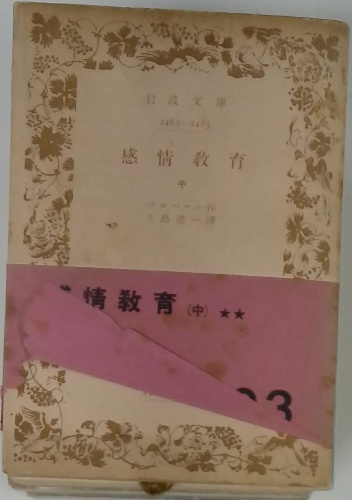 岩波文庫
感情教育
中
フロベール作
生島遼一譯
情教育(中)★★